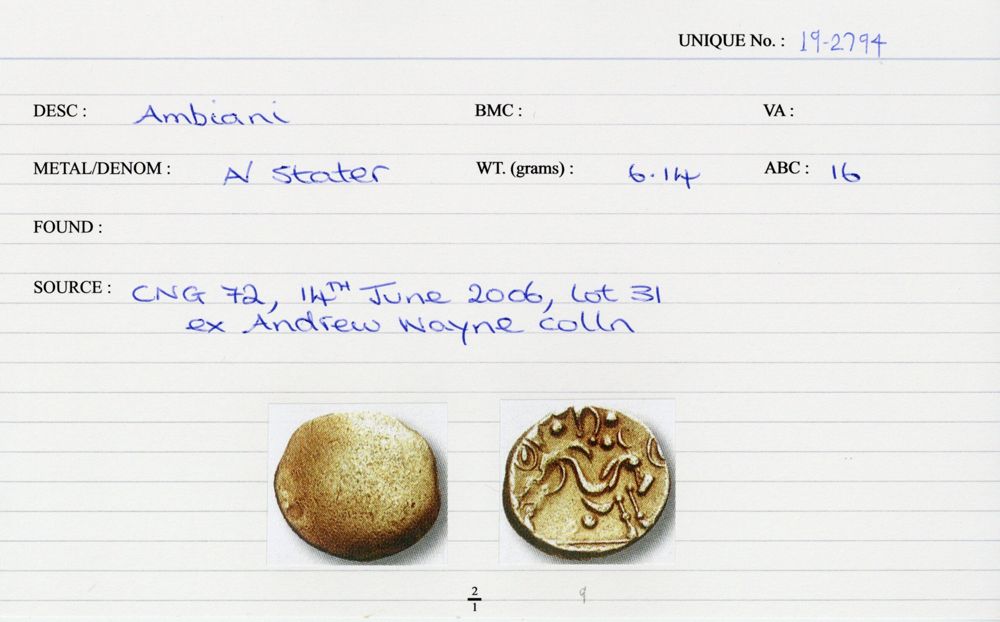 UNIQUE No. : 19-2794
DESC : Ambiani BMC : VA :
METAL/DENOM : A/ Stater WT. (grams) : 6.14 ABC : 16
FOUND :
SOURCE : CNG 72, 14TH June 2006, Lot 31
ex Andrew Wayne colln
2
1
9